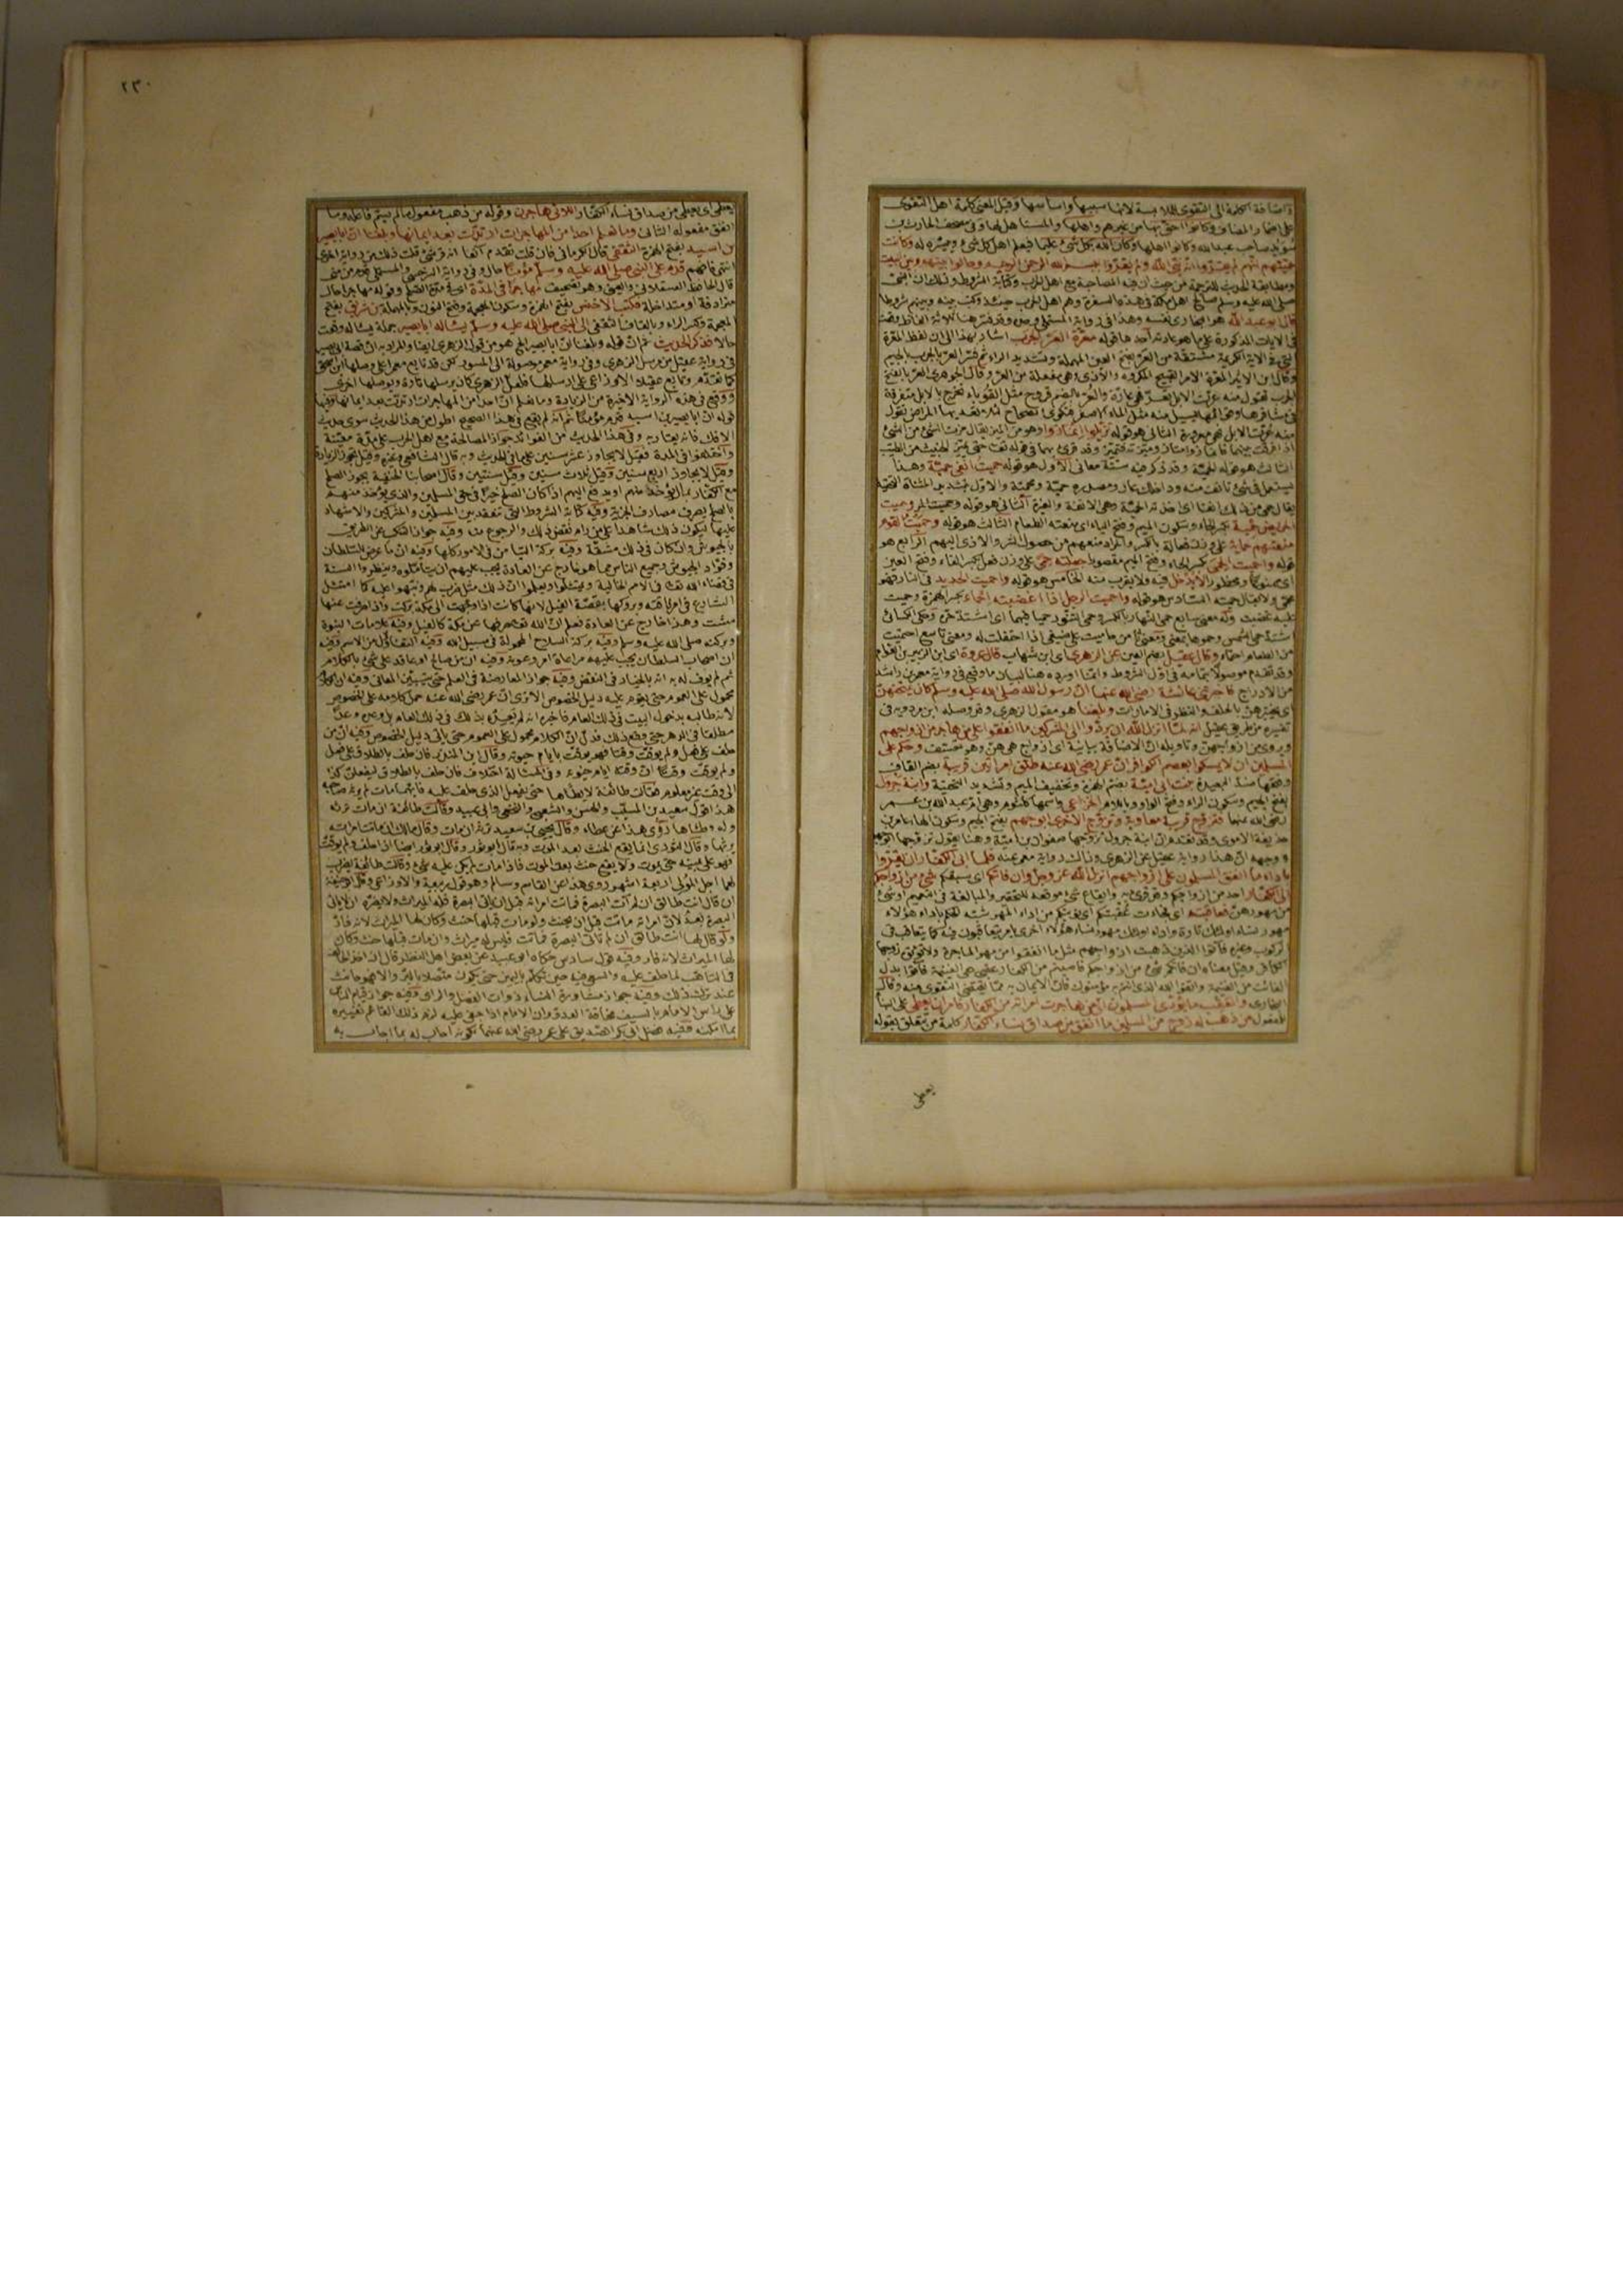 واضافة الكلمة الى التقوى للملابسة لانها سببها واساسها وقيل المعنى كلمة اهل التقوى
على اضمار المضاف وكانوا احق بها من غيرهم واهلها والمستاهل لها وفى مصحف الحارث بن
سويد صاحب عبد الله وكانوا اهلها وكان الله بكل شئ عليما فيعلم اهل كل شئ وييسره له وكانت
حميتهم انهم لم يقروا انه نبى الله ولم يقروا ببسم الله الرحمن الرحيم وحالوا بينهم وبين البيت
ومطابقة الحديث للترجمة من حيث ان فيه المصالحة مع اهل الحرب وكتابة الشروط وذلك ان النبى
صلى الله عليه وسلم صالح اهل مكة فى هذه السفرة وهم اهل الحرب حينئذ وكتب بينه وبينهم شروطا
قال ابو عبد الله هو البخارى نفسه وهذا فى رواية المستملى
فى الايات المذكورة على ما هو عادته احدها قوله معرة العر الجرب اشار بهذا الى ان لفظ المعرة
التى فى الاية الكريمة مشتقة من العر بفتح العين المهملة وتشديد الراء ثم فسر العر بالجرب بالجيم
وقال ابن الاثير المعرة الامر القبيح المكروه والاذى وهى مفعلة من العر وقال الجوهرى العر بالفتح
الجرب تقول منه عرت الابل تعر فهى عارة والعر بالضم قروح مثل القوباء تخرج بالابل متفرقة
فى مشافرها وقوائمها يسيل منه مثل الماء الاصفر فتكوى الصحاح لئلا تعديها المراض تقول
منه عرت الابل فهى معرورة الثانى هو قوله تزيلوا انمازوا وهو من الميز يقال مزت الشئ من الشئ
الثالث هو قوله الحمية وقد ذكر فيه ستة معانى الاول هو قوله حميت انفى حمية وهذا
يقال حمى من ذلك انفا اى اخذته الحمية وهى الانفة والغيرة الثانى هو قوله وحميت المريض
حمية بكسر الحاء وسكون الميم وفتح الياء اى منعته الطعام الثالث هو قوله وحميت القوم
منعتهم حماية على وزن فعالة بالكسر والمراد منعهم من حصول الشر والاذى اليهم الرابع هو
قوله واحميت الحمى بكسر الحاء وفتح الميم مقصورا جعلته حمى على وزن فعل بكسر الفاء وفتح العين
اى ممنوعا ومحظورا لا يدخل فيه ولا يقرب منه الخامس هو قوله واحميت الحديد فى النار فهو
محمى ولا يقال حميته السادس هو قوله واحميت الرجل اذا اغضبته احماء بكسر الهمزة وحميت
من الطعام احماء وقال عقيل بضم العين عن الزهرى اى ابن شهاب قال عروة اى ابن الزبير بن العوام
من الادراج فاخبرتنى عائشة رضى الله عنها ان رسول الله صلى الله عليه وسلم كان يمتحنهن
اى يختبرهن بالحلف والنظر فى الامارات وبلغنا هو مقول الزهرى وقد وصله ابن مردويه فى
تفسيره من طريق عقيل انه لما انزل الله ان يردوا الى المشركين ما انفقوا على من هاجر من ازواجهم
المسلمين ان لا يمسكوا بعصم الكوافر ان عمر رضى الله عنه طلق امراتين قريبة بضم القاف
وفتحها مصغر بنت ابى امية بضم الهمزة وتخفيف الميم وتشديد التحتية وابنة جرول
بفتح الجيم وسكون الراء وفتح الواو وباللام الخزاعى واسمها كلثوم وهى ام عبد الله بن عمر
رضى الله عنهما فتزوج قريبة معاوية وتزوج الاخرى ابو جهم بفتح الجيم وسكون الهاء
ووجهه ان هذا رواية عقيل عن الزهرى وذاك رواية معمر عنه فلما ابى الكفار ان يقروا
باداء ما انفق المسلمون على ازواجهم انزل الله عز وجل وان فاتكم اى سبقكم شئ من ازواجكم
الى الكفار احد من ازواجكم
مهور نساء اولئك تارة واداء اولئك مهور نساء هؤلاء اخرى بامر يتعاقبون فيه كما يتعاقب فى
الركوب وغيره فآتوا الذين ذهبت ازواجهم مثل ما انفقوا من مهر المهاجرة ولا تؤتوه زوجها
الفائت من الغنيمة واتقوا الله الذى انتم به مؤمنون فان الايمان به مما يقتضى التقوى منه وقال
للمفعول من ذهب له زوج من المسلمين ما انفق من صداق نساء الكفار كلمة من متعلق بقوله
يعطى
٢٣٠
يعطى اى يعطى من صداق نساء الكفار اللاتى هاجرن وقوله من ذهب مفعول ما لم يسم فاعله وما
انفق مفعوله الثانى وما نعلم احدا من المهاجرات ارتدت بعد ايمانها وبلغنا ان ابا بصير
بن اسيد بفتح الهمزة الثقفى قال الكرمانى فان قلت تقدم آنفا انه قرشى قلت ذلك من رواية اخرى
قال الحافظ العسقلانى والعينى وهو تصحيف مهاجرا فى المدة اى فى مدة الصلح وقوله مهاجرا حال
مترادفة او متداخلة فكتب الاخنس بفتح الهمزة وسكون المعجمة وفتح النون وبالمهملة بن شريق بفتح
المعجمة وكسر الراء وبالقاف الثقفى الى النبى صلى الله عليه وسلم يسأله ابا بصير جملة يسأله وقعت
حالا فذكر الحديث ثم ان قوله وبلغنا ان ابا بصير الخ هو من قول الزهرى ايضا والمراد به ان قصة ابى بصير
فى رواية عقيل من مرسل الزهرى وفى رواية معمر موصولة الى المسور لكن قد تابع معمرا على وصلها ابن اسحق
كما تقدم وتابع عقيلا الاوزاعى على ارسالها فلعل الزهرى كان يرسلها تارة ويوصلها اخرى
ووقع فى هذه الرواية الاخيرة من الزيادة وما نعلم ان احدا من المهاجرات ارتدت بعد ايمانها وفيها
قوله ان ابا بصير بن اسيد قدم مؤمنا ثم انه لم يقع فى هذا الصحيح اطول من هذا الحديث سوى حديث
الافك فانه يقاربه وفى هذا الحديث من الفوائد جواز المصالحة مع اهل الحرب على مدة معينة
واختلفوا فى المدة فقيل لا يجاوز عشر سنين على ما فى الحديث وبه قال الشافعى وغيره وقيل تجوز الزيادة
وقيل لا يجاوز اربع سنين وقيل ثلاث سنين وقيل سنتين وقال اصحابنا الحنفية يجوز الصلح
مع الكفار بمال يؤخذ منهم او يدفع اليهم اذا كان الصلح خيرا فى حق المسلمين والذى يؤخذ منهم
بالصلح يصرف مصارف الجزية وفيه كتابة الشروط التى تنعقد بين المسلمين والمشركين والاشهاد
عليها ليكون ذلك شاهدا على من رام نقض ذلك والرجوع منه وفيه جواز التنكب عن الطريق
بالجيوش وان كان فى ذلك مشقة وفيه بركة التيامن فى الامور كلها وفيه ان ما عرض للسلطان
وقواد الجيوش وجميع الناس مما هو خارج عن العادة يجب عليهم ان يتأملوه وينظروا السنة
فى قضاء الله تعالى فى الامم الخالية ويمتثلوا ويعلموا ان ذلك مثل ضرب لهم ونبهوا عليه كما امتثل
الشارع فى امر ناقته وبروكها بقصة الفيل لانها كانت اذا وجهت الى مكة بركت واذا صرفت عنها
مشت وهذا خارج عن العادة فعلم ان الله تعالى صرفها عن مكة كالفيل وفيه علامات النبوة
وبركته صلى الله عليه وسلم وفيه بركة السلاح المحمولة فى سبيل الله وفيه التفاؤل من الاسم وفيه
ان اصحاب السلطان يجب عليهم مراعاة امره وعونه وفيه ان من صالح او عاقد على شئ بالكلام
ثم لم يوف له به انه بالخيار فى النقض وفيه جواز المعارضة فى العلم حتى يتبين المعانى وفيه ان الكلام
محمول على العموم حتى يقوم عليه دليل الخصوص الا ترى ان عمر رضى الله عنه حمل كلامه على الخصوص
لانه طالبه بدخول البيت فى ذلك العام فاخبره انه لم يعده بذلك فى ذلك العام بل وعده وعدا
مطلقا فى الدهر حتى وقع ذلك فدل ان الكلام محمول على العموم حتى يأتى دليل الخصوص وفيه ان من
حلف على فعل ولم يوقت وقتا فهو يوقت بايام حياته وقال ابن المنذر فان حلف بالطلاق على فعل
ولم يوقت وقتا ان وقته ايام حياته وفى المسألة اختلاف فان حلف بالطلاق ليفعلن كذا
الى وقت غير معلوم فقالت طائفة لا يطأها حتى يفعل الذى حلف عليه فايهما مات لم يرثه صاحبه
هذا قول سعيد بن المسيب والحسن والشعبى والنخعى وابى عبيد وقالت طائفة ان مات ورثته
وله وطئها روى هذا عن عطاء وقال يحيى بن سعيد ترثه ان مات وقال مالك ان ماتت امرأته
يرثها وقال الثورى انما يقع الحنث بعد الموت وبه قال ابو ثور وقال ابو ثور ايضا اذا حلف ولم يوقت
فهو على يمينه حتى يموت ولا يقع حنث بعد الموت فاذا مات لم يكن عليه شئ وقالت طائفة يضرب
لهما اجل المولى اربعة اشهر روى هذا عن القاسم وسالم وهو قول ربيعة والاوزاعى وقال ابو حنيفة
ان قال انت طالق ان لم آت البصرة فماتت امرأته قبل ان يأتى البصرة فله الميراث ولا يضره ان لا يأتى
البصرة بعد لان امرأته ماتت قبل ان يحنث ولو مات قبلها حنث وكان لها الميراث لانه فار
ولو قال لها انت طالق ان لم تأتى البصرة فماتت فليس له ميراث وان مات قبلها حنث وكان
لها الميراث لانه فار وفيه قول سادس حكاه ابو عبيد عن بعض اهل النظر قال ان اخذ الحالف
فى التأهب لما حلف عليه والسعى فيه حين تكلم باليمين حتى يكون متصلا بالبر والا فهو حانث
عند ترك ذلك وفيه جواز مشاورة النساء ذوات الفضل والرأى وفيه جواز قيام الناس
على رأس الامام بالسيف مخافة العدو وان الامام اذا جفى عليه لزم ذلك القائم تغييره
بما امكنه وفيه فضل ابى بكر الصديق على عمر رضى الله عنهما لكونه اجاب له بما اجاب به